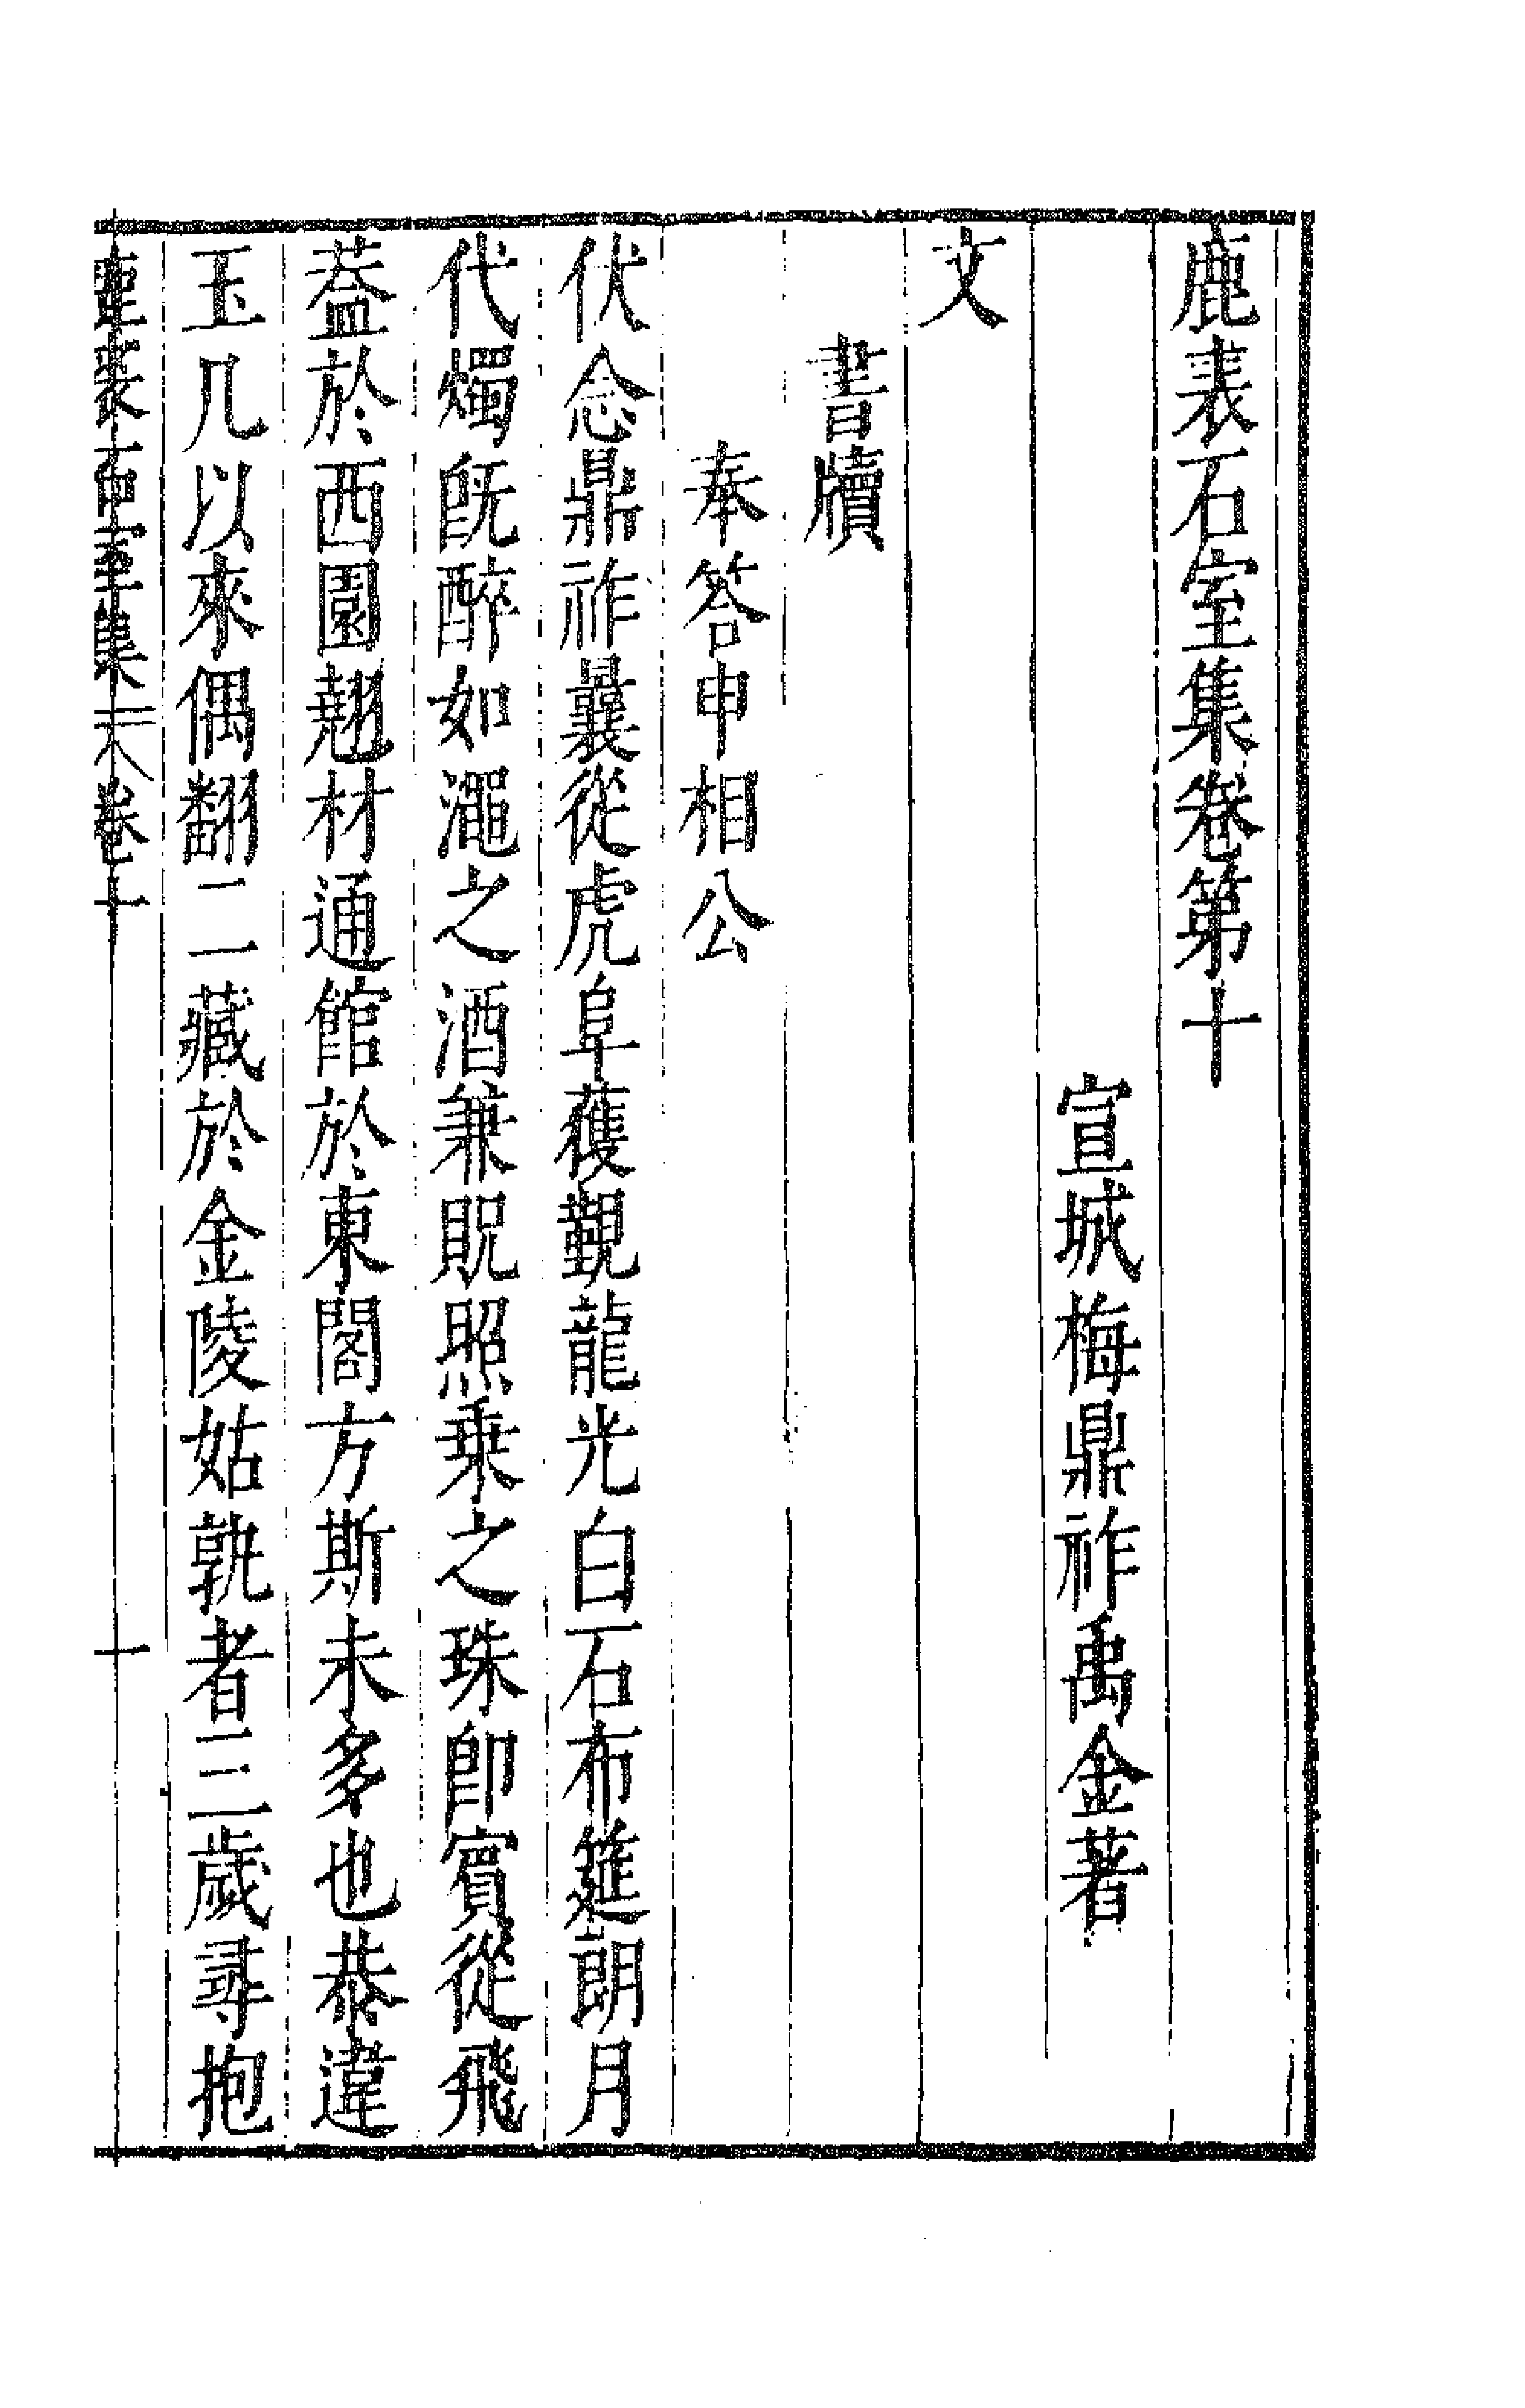 鹿裘石室集卷第十
宣城梅鼎祚禹金著
文
書牘
奉答申相公
伏念鼎祚曩從虎阜獲覯龍光白石布筵朗月
代燭旣醉如澠之酒兼貺照乗之珠卽賓從飛
葢於西園翹材通館於東閣方斯未多也恭違
玉几以來偶翻二一藏於金陵姑孰者三歲尋抱
鹿裘石室集 卷十 一